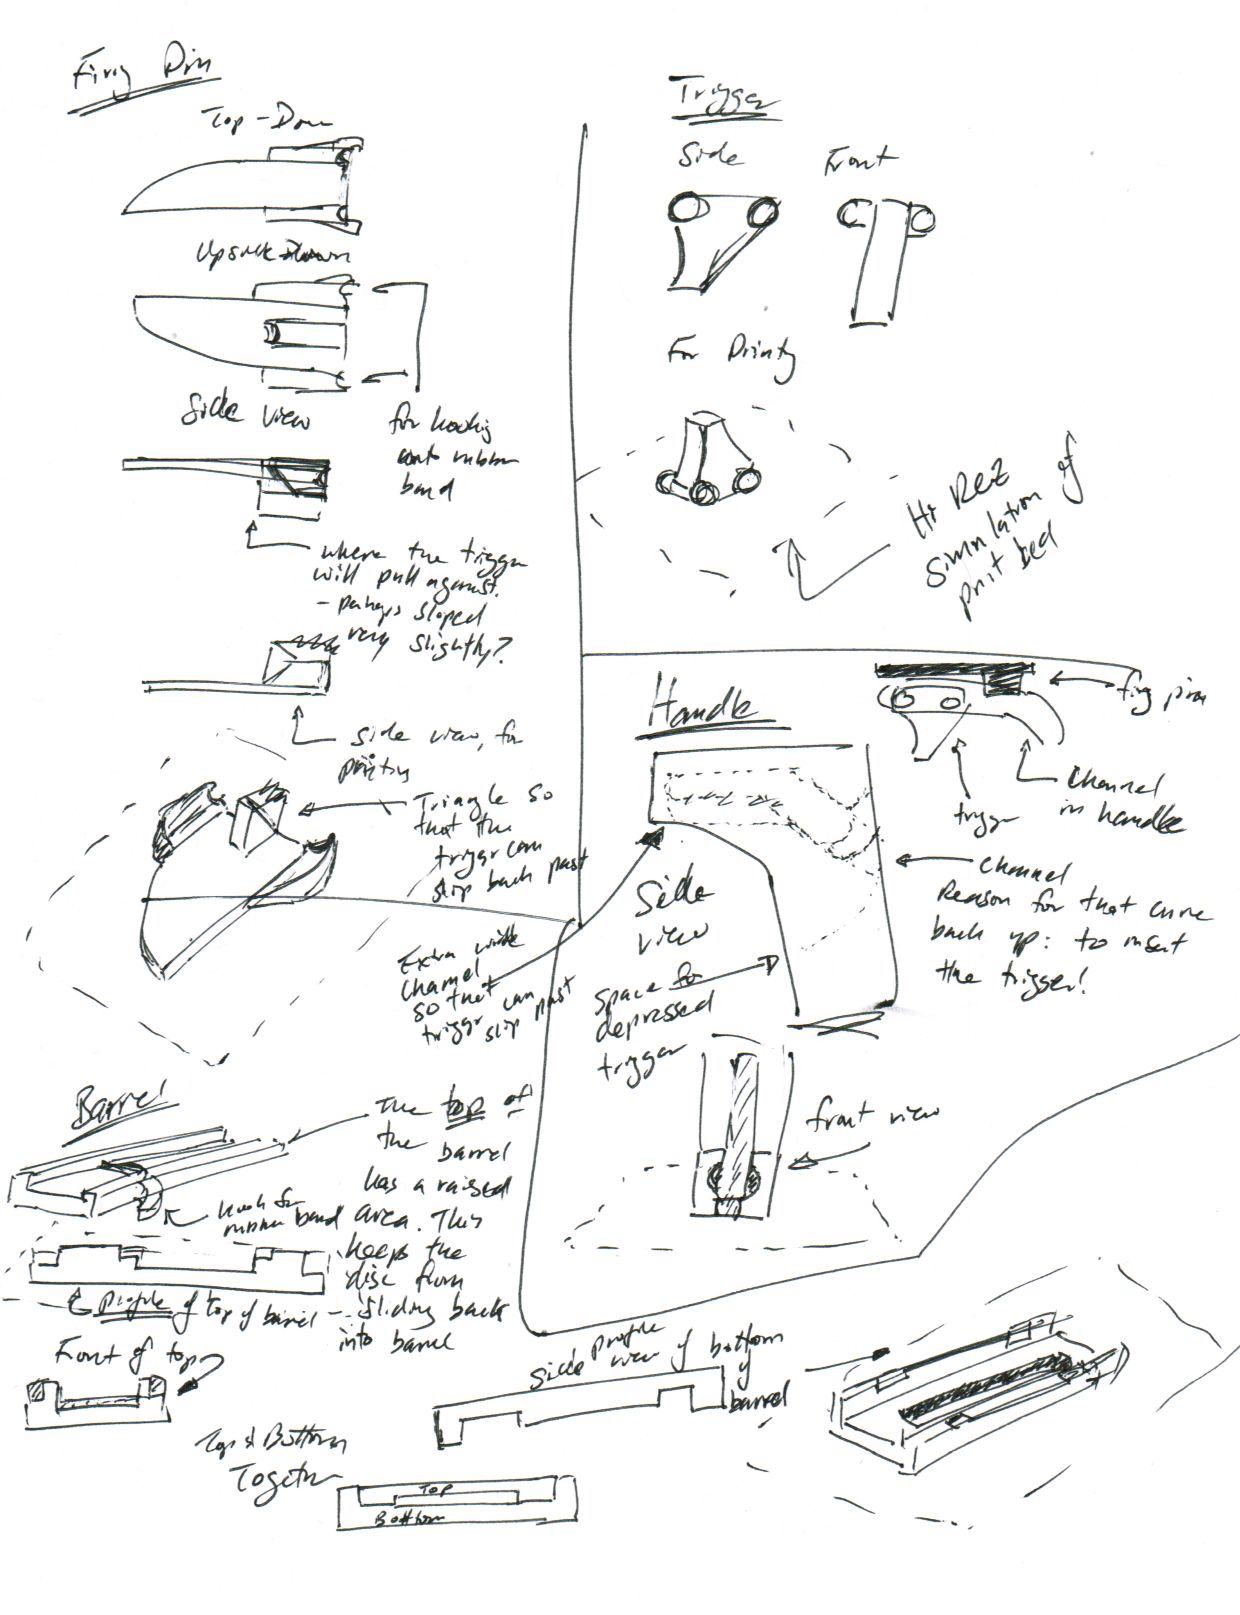 Firing Pin
Top-Down
Upside Down
Side view
for hooking
onto rubber
band
where the trigger
will pull against.
- perhaps sloped
very slightly?
side view, for
printing
Triangle so
that the
trigger can
slip back past
Extra wide
channel
so that
trigger can
slip past
Trigger
Side
Front
For Printing
Hi Rez
simulation of
print bed
Handle
firing pin
Channel
in handle
trigger
Channel
Reason for that curve
back up: to insert
the trigger!
Side
view
Space for
depressed
trigger
front view
Barrel
The top of
the barrel
has a raised
area. This
keeps the
disc from
sliding back
into barrel
hook for
rubber band
Profile of top of barrel
Front of top
Side profile
view of bottom
of
barrel
Top & Bottom
Together
Top
Bottom